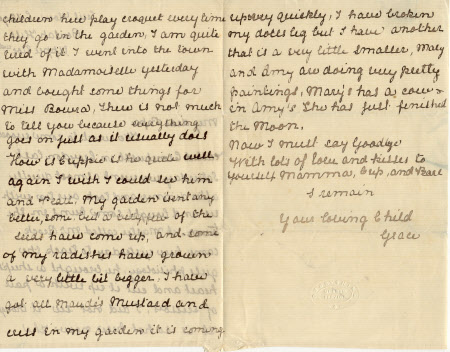 children here play croquet every time
they go in the garden, I am quite
tired of it I went into the town
with Madamoiselle yesterday
and bought some things for
Miss There is not much
to tell you because everything
goes on just as it usually does
How is is he quite well
again I wish I could see him
and My garden isent any
some but a very few of the
seeds have come up, and some
of my radishes have grown
a very little bit bigger. I have
got all Maude's Mustard and
cress in my garden it is coming
up very quickly, I have broken
my doles leg but I have another
that is a very little smaller, Mary
and Amy are doing very pretty
paintings, Mary's has a cow
in Amy's She has just finished
the Moon.
Now I must say Goodbye
With lots of love and kisses to
yourself Mamma, and
I remain
Your loving Child
Grace